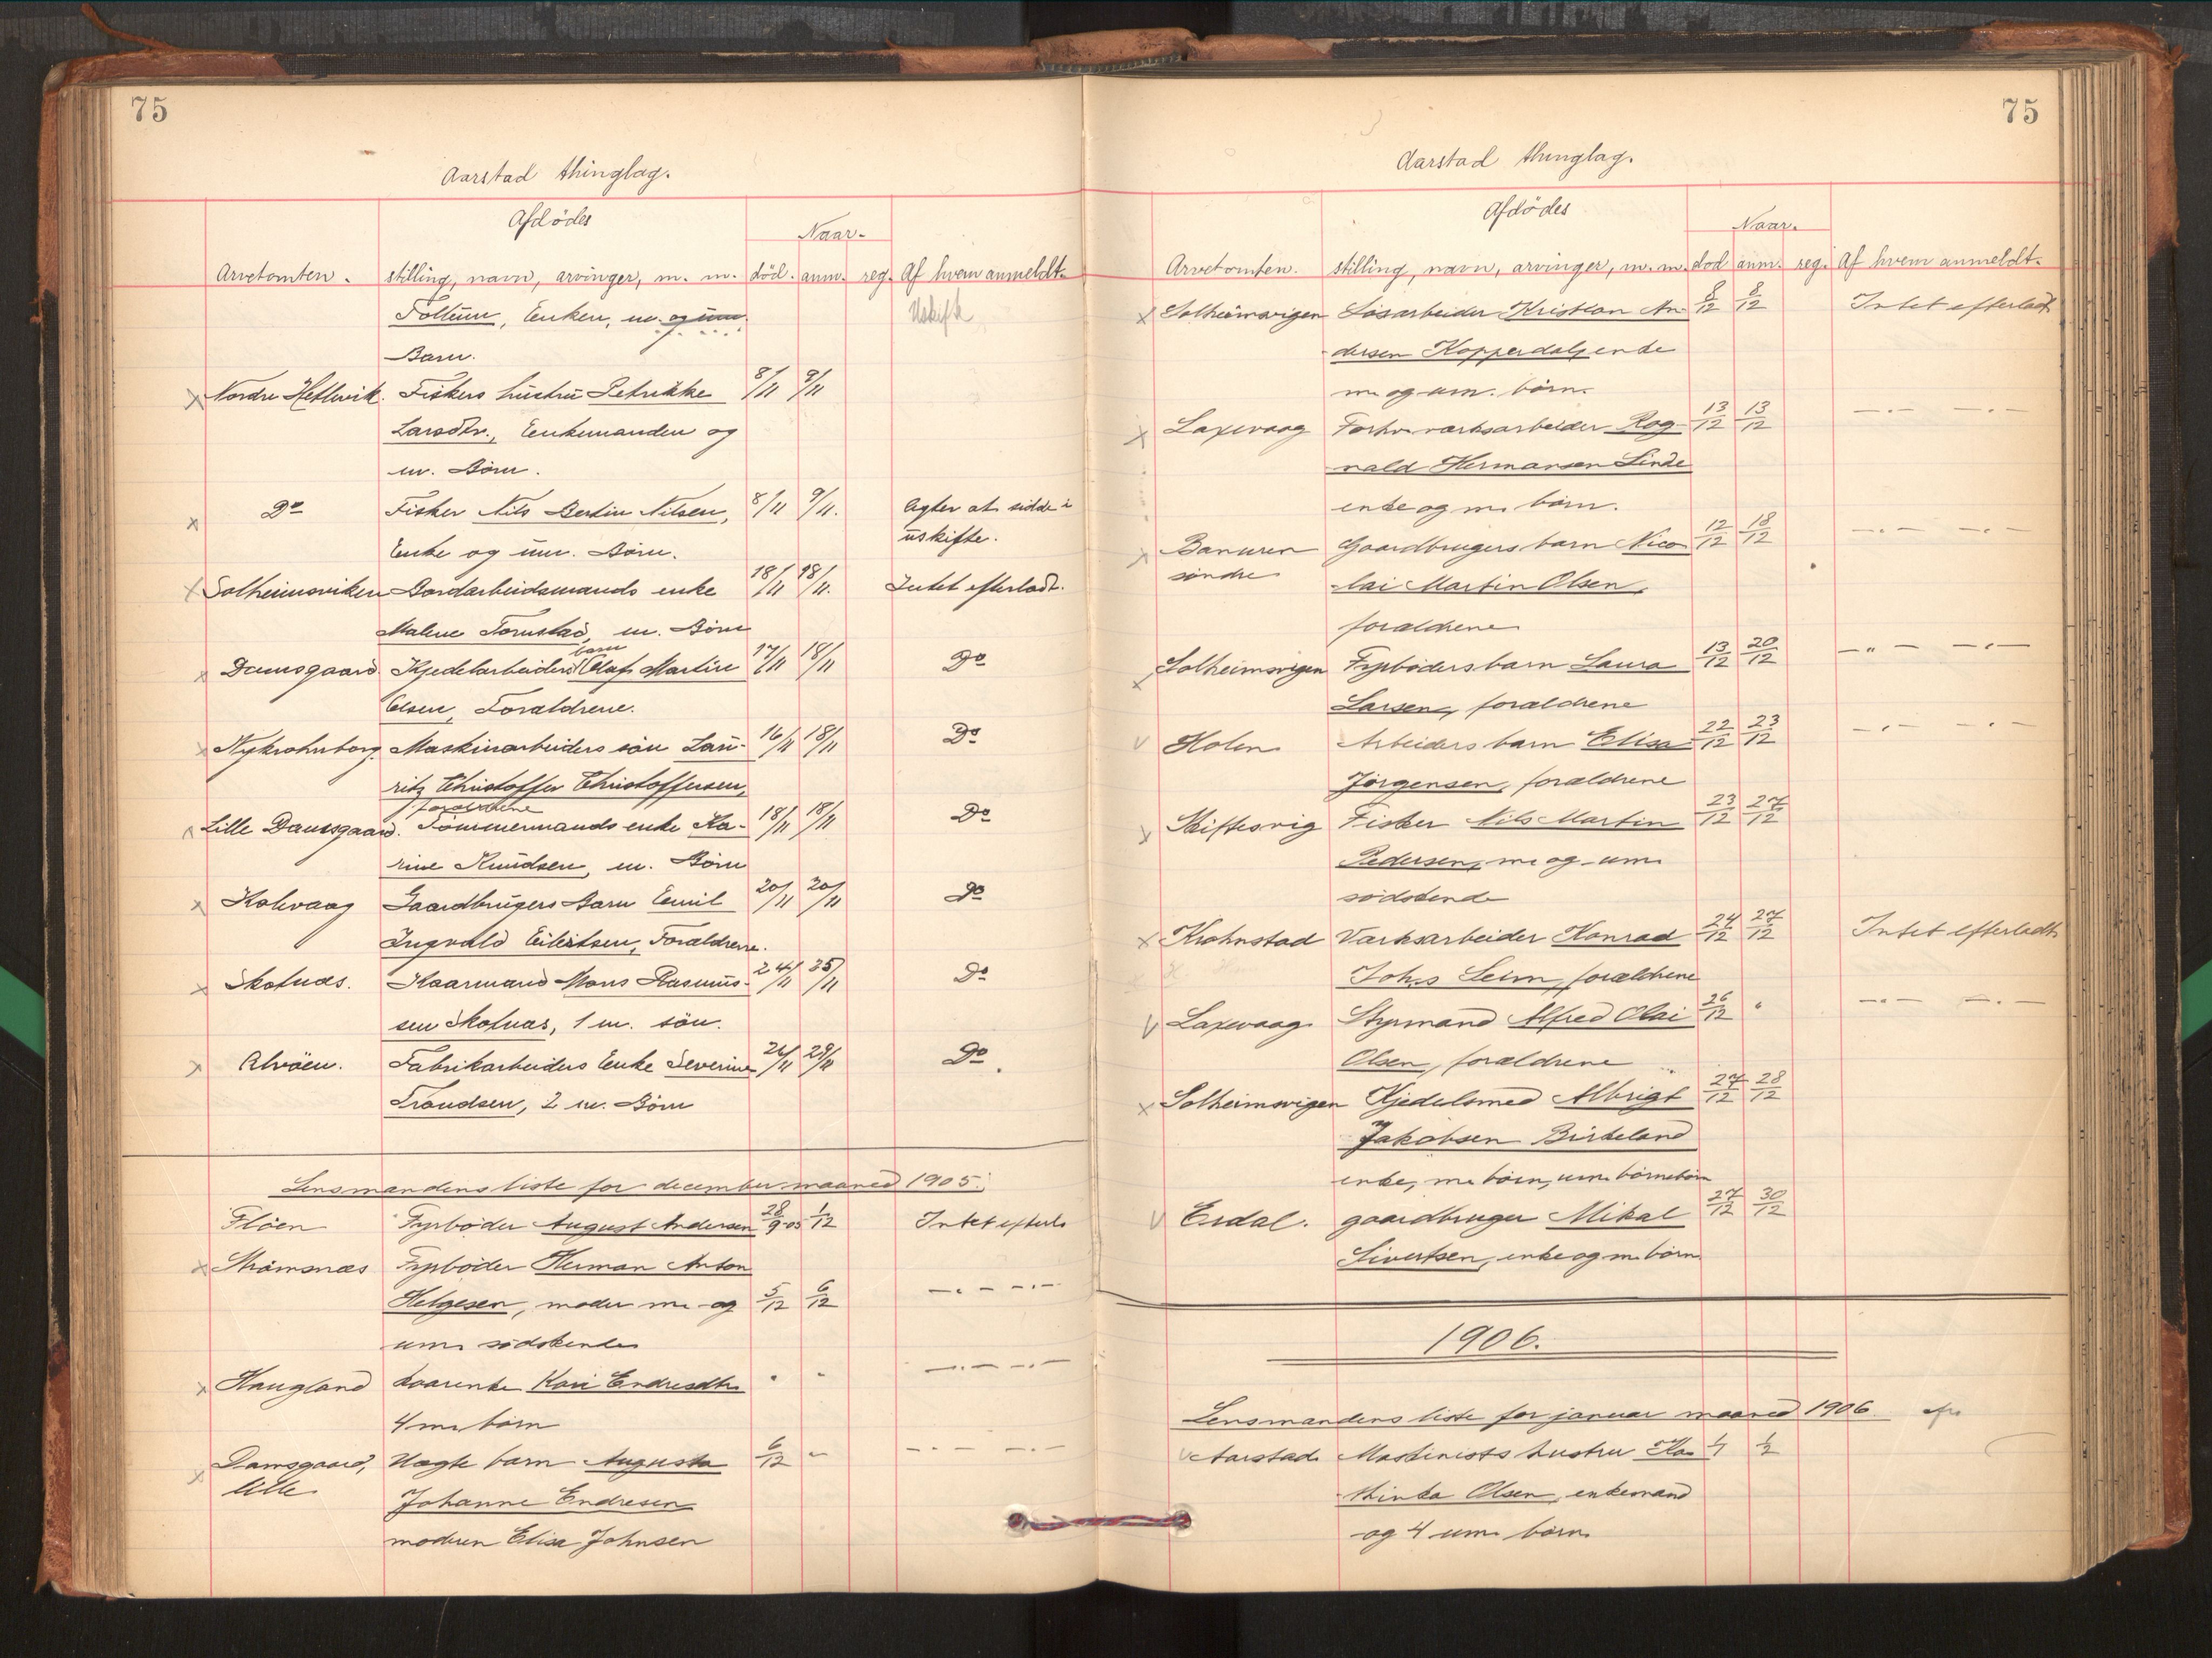 75
Aarstad thinglag.
Afdödes
Naar.
Arvetomten. stilling, navn, arvinger, m. m. död. anm. reg. Af hvem anmeldt.
Follum, Enken, m. og um. Uskifte
Barn.
x Nordre Hetlevik. Fiskers hustru Petrikke 8/11 9/11
Larsdtr., Enkemanden og
m. Börn.
x Do Fisker Nils Bertin Nilsen, 8/11 9/11. Agter at sidde i
Enke og um. Börn. uskifte.
x Solheimsviken Jordarbeidsmands enke 18/11 18/11. Intet efterladt.
Malene Tornstad, m. Börn
barn
x Damsgaard. Kjedelarbeiders Olaf Martin 17/11 18/11 Do
Olsen, Forældrene.
x Nykrohnborg. Maskinarbeiders sön Lau- 16/11 18/11 Do
ritz Christoffer Christoffersen,
forældrene
x Lille Damsgaard. Tömmermands enke Ka- 18/11 18/11 Do
rine Knudsen, m. Börn
x Kolvaag Gaardbrugers Barn Emil 20/11 20/11 Do
Ingvald Eilertsen, Forældrene.
x Skotnæs. Kaarmand Mons Rasmus- 24/11 25/11 Do
sen Skotnæs, 1 m. sön.
x Alvöen. Fabrikarbeiders Enke Severine 26/11 29/11 Do
Troudsen, 2 m. Börn
Lensmandens liste for december maaned 1905.
Flöen Fyrböder August Andersen 28/9-05 1/12 Intet efterl.
x Strömsnæs Fyrböder Herman Anton
Helgesen, moder m. og 5/12 6/12 —.— —.—
um. södskende
x Haugland Kaarenke Kari Endresdtr. " " —.— —.—
4 m. börn
x Damsgaard, Uægte barn Augusta 6/12 " —.— —.—
lille Johanne Endresen
moderen Elisa Johnsen
75
Aarstad thinglag.
Afdödes
Naar.
Arvetomten. stilling, navn, arvinger, m. m. död anm. reg. Af hvem anmeldt.
x Solheimsvigen Lösarbeider Kristian An- 8/12 8/12 Intet efterladt
dersen Kopperdal, enke
m. og um. börn.
x Laxevaag Forhv. værksarbeider Rag- 13/12 13/12 —.— —.—
nald Hermansen Linde
enke og m. börn.
x Gaardbrugers barn Nico- 12/12 18/12 —.— —.—
söndre lai Martin Olsen,
forældrene
x Solheimsvigen Fyrböders barn Laura 13/12 20/12 —"— —.—
Larsen, forældrene
v Holen Arbeiders barn Elisa 22/12 23/12 —.— —.—
Jörgensen, forældrene
v Skiftesvig Fisker Nils Martin 23/12 27/12
Pedersen, m. og um.
södskende
x Krohnstad Værksarbeider Konrad 24/12 27/12 Intet efterladt
Johs Leim, forældrene
v Laxevaag. Styrmand Alfred Olai 26/12 " —.— —.—
Olsen, forældrene
x Solheimsvigen Kjedelsmed Albrigt 27/12 28/12
Jakobsen Birkeland
enke, m. börn, um. börnebörn
v Esdal. gaardbruger Mikal 27/12 30/12
Sivertsen, enke og m. börn
1906.
Lensmandens liste for januar maaned 1906.
v Aarstad Maskinists hustru Ka- 1/1 1/2
thinka Olsen, enkemand
og 4 um. börn